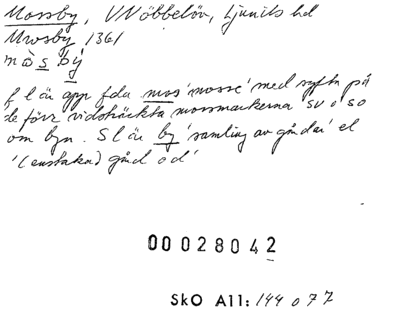 Mossby, V Nöbbelöv, Ljunits hd
Mwsby 1361
mòsbý
f l är gpp fda mos 'mosse' med syftn på
de förr vidsträckta mossmarkerna sv o so
om byn. S l är by 'samling av gårdar' el
'(enstaka) gård o d'
00028042
SkO A11: 144 o 77